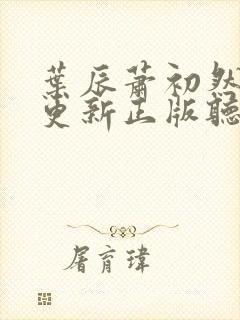 葉辰蕭初然
更新正版聽
屠育瑋